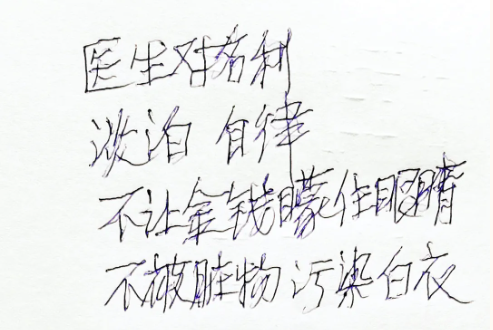 医生对名利
淡泊 自律
不让金钱矇住眼睛
不被脏物污染白衣